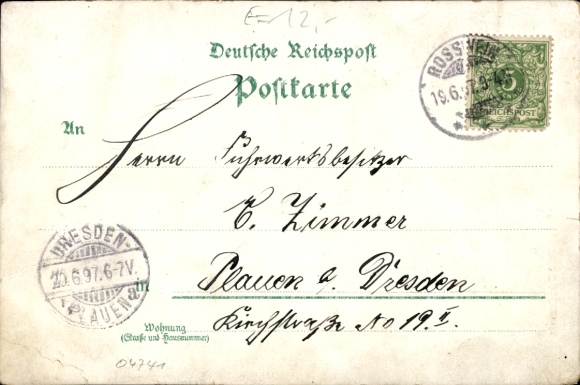 E=12,-
Deutsche Reichspost
Postkarte
ROSSWEIN
19.6.97.
5
REICHSPOST
An
Herrn Fuhrwerksbesitzer
E. Zimmer
DRESDEN-
20.6.97.6-7V.
PLAUEN
in Plauen b. Dresden
Wohnung
(Straße und Hausnummer)
Kirchstraße No 19. II
04741